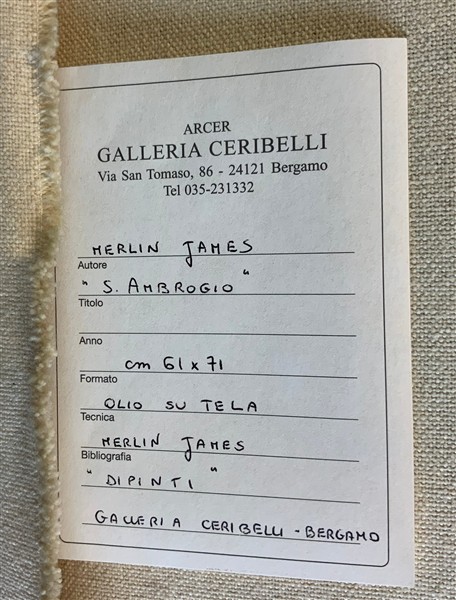 ARCER
GALLERIA CERIBELLI
Via San Tomaso, 86 - 24121 Bergamo
Tel 035-231332
MERLIN JAMES
Autore
" S. AMBROGIO "
Titolo
Anno
cm 61 x 71
Formato
OLIO SU TELA
Tecnica
MERLIN JAMES
Bibliografia
" DIPINTI "
GALLERIA CERIBELLI - BERGAMO